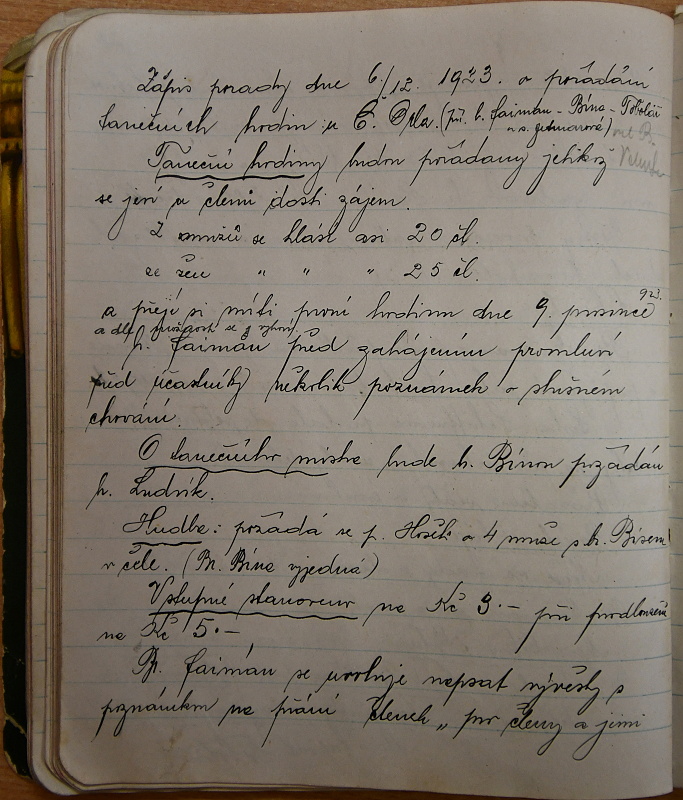 Zápis porady dne 6/12. 1923. o pořádání
tanečních hodin u Č. Orla. (př. b. Faiman - Bína -
Taneční hodiny budou pořádány jelikož
se jeví u členů dosti zájem.
Z mužů se hlásí asi 20 čl.
ze žen " " " 25 čl.
a přejí si míti první hodinu dne 9. prosince 923.
a dle možnosti se j vyhoví.
b. Faimán před zahájením promluví
před účastníky několik poznámek o slušném
chování.
O tanečního mistra bude b. Bínou požádán
b. Ludvík.
Hudba: požádá se p. Hošek o 4 muže s b. Bísem
v čele. (Br. Bína vyjedná)
Vstupné stanoveno na Kč 3.— při prodloužení
na Kč 5.—
Br. Faimán se uvoluje napsat vývěsky s
poznámkou na přání členek „pro členy a jimi